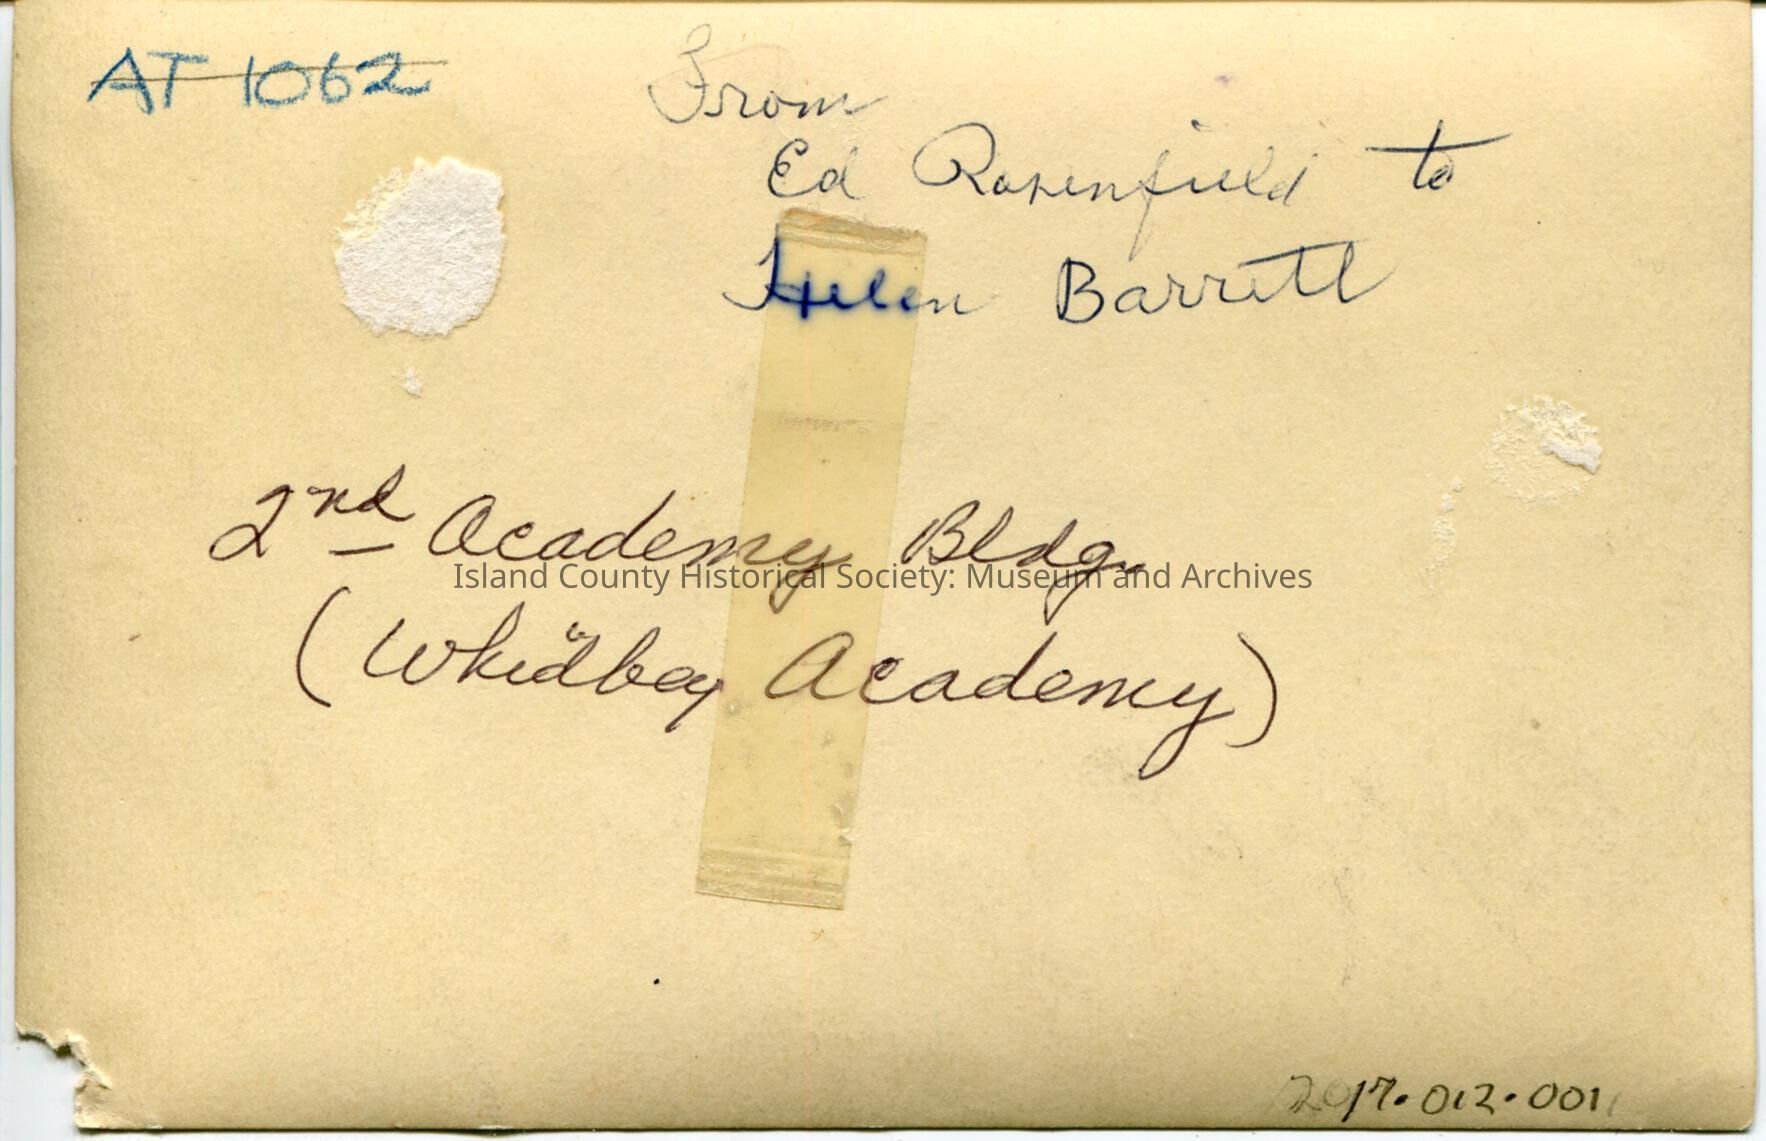 AT 1062
From
Ed Rosenfield to
Helen Barrett
2nd Academy Bldg.
Island County Historical Society: Museum and Archives
(Whidbey Academy)
2017.012.001